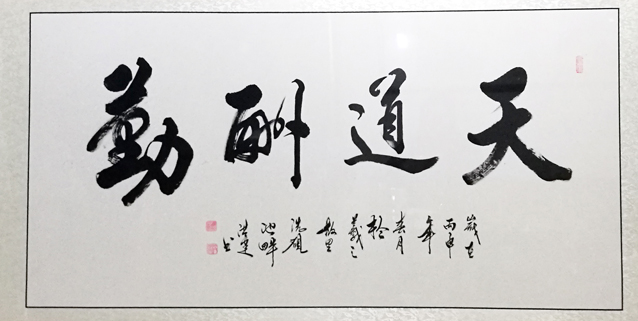 天道酬勤
歲在
丙申
年
春月
於
羲之
故里
洗硯
池畔
书